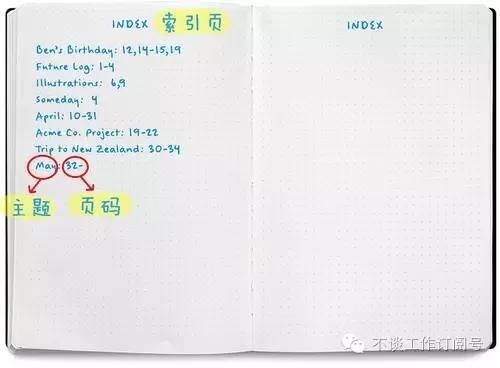 INDEX 索引页
Ben's Birthday: 12,14-15,19
Future Log: 1-4
Illustrations: 6,9
Someday: 4
April: 10-31
Acme Co. Project: 19-22
Trip to New Zealand: 30-34
May: 32-
主题 页码
INDEX
不谈工作订阅号